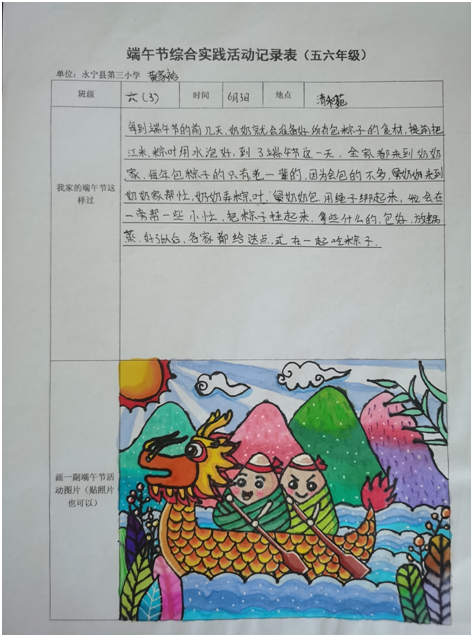 端午节综合实践活动记录表（五六年级）
单位：永宁县第三小学
班级 六(3) 时间 6月3日 地点
我家的端午节这样过
每到端午节的前几天，奶奶就会准备好所有包粽子的食材，提前把
江米、粽叶用水泡好，到了端午节这一天，全家都来到奶奶
家，每年包粽子的只有老一辈的，因为会包的不多，舅奶奶来到
奶奶家帮忙，奶奶弄粽叶，舅奶奶包，用绳子绑起来，我会在
一旁帮一些小忙，把粽子挂起来，拿些什么的，包好，放锅
蒸，好了以后，各家都给送点，或在一起吃粽子。
画一副端午节活动图片（贴照片也可以）